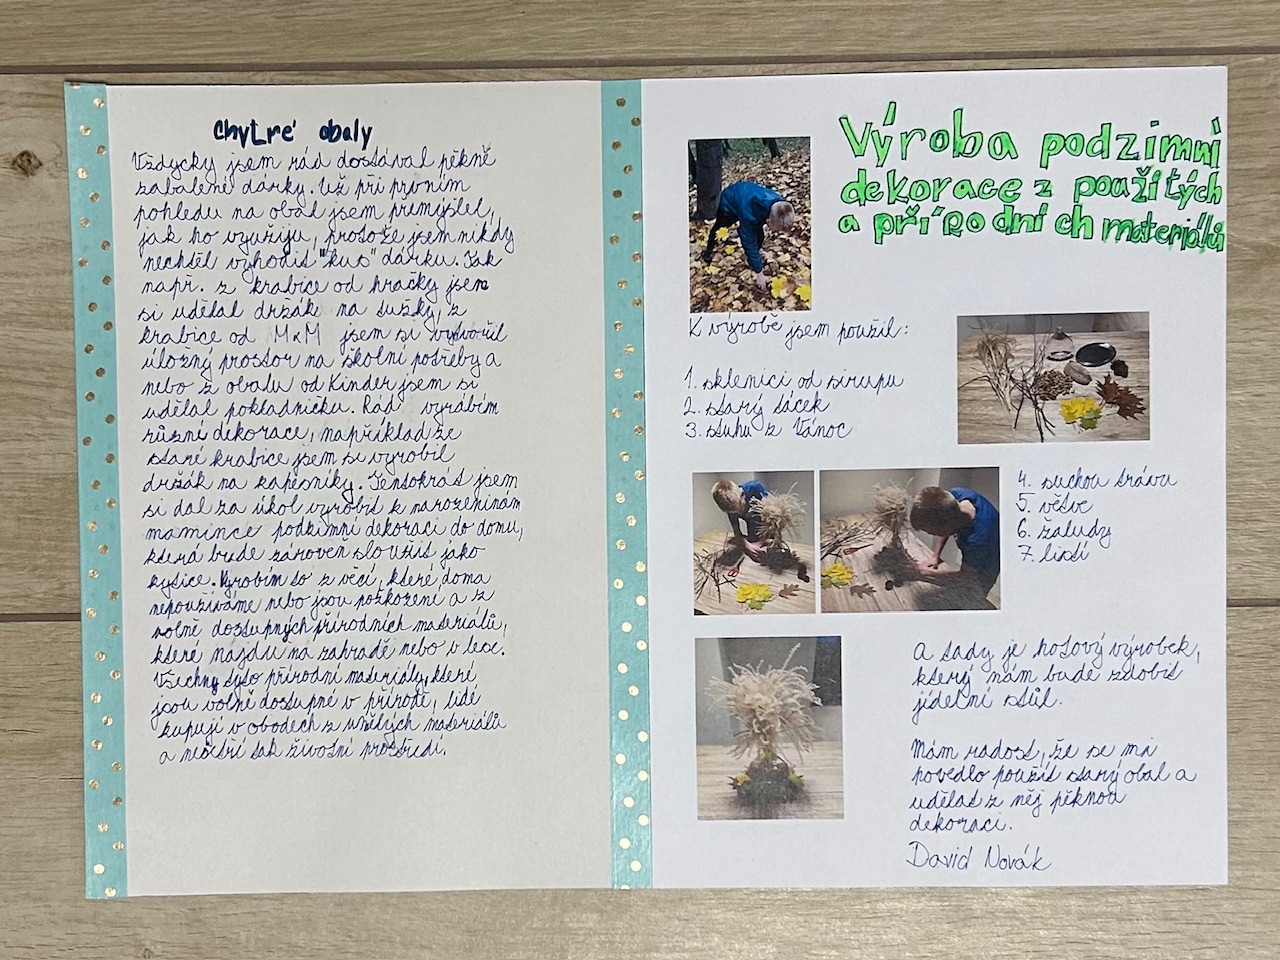 Chytré obaly
Vždycky jsem rád dostával pěkně
zabalené dárky. Už při prvním
pohledu na obal jsem přemýšlel,
jak ho využiju, protože jsem nikdy
nechtěl vyhodit "kus" dárku. Tak
např. z krabice od hračky jsem
si udělal držák na tužky, z
krabice od M&M jsem si vytvořil
úložný prostor na školní potřeby a
nebo z obalu od Kinder jsem si
udělal pokladničku. Rád vyrábím
různé dekorace, například ze
staré krabice jsem si vyrobil
držák na kapesníky. Tentokrát jsem
si dal za úkol vyrobit k narozeninám
mamince podzimní dekoraci do domu,
která bude zároveň sloužit jako
kytice. Vyrobím to z věcí, které doma
nepoužíváme nebo jsou poškození a z
volně dostupných přírodních materiálů,
které najdu na zahradě nebo v lese.
Všechny tyto přírodní materiály, které
jsou volně dostupné v přírodě, lidé
kupují v obodech z umělých materiálů
a nešetří tak životní prostředí.
Výroba podzimní
dekorace z použitých
a přírodních materiálů
K výrobě jsem použil:
1. sklenici od sirupu
2. starý tácek
3. stuhu z Vánoc
4. suchou trávu
5. větve
6. žaludy
7. listí
A tady je hotový výrobek,
který nám bude zdobit
jídelní stůl.
Mám radost, že se mi
povedlo použít starý obal a
udělat z něj pěknou
dekoraci.
David Novák